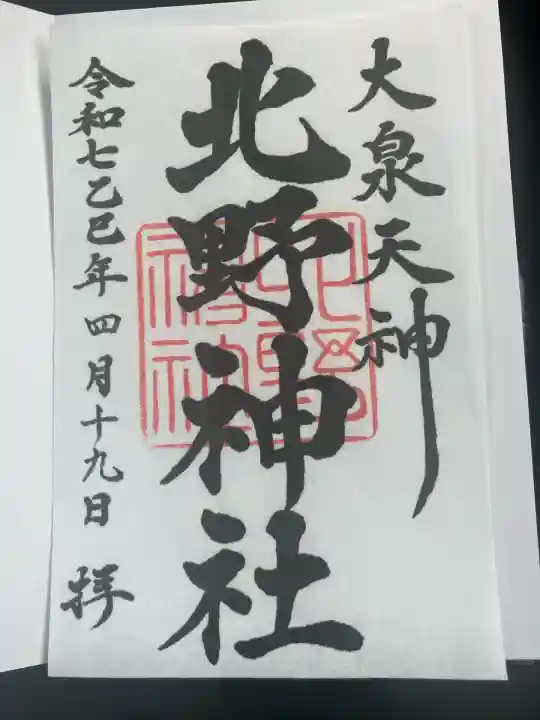 大泉天神
北野神社
令和七乙巳年四月十九日 拝
北野
神社